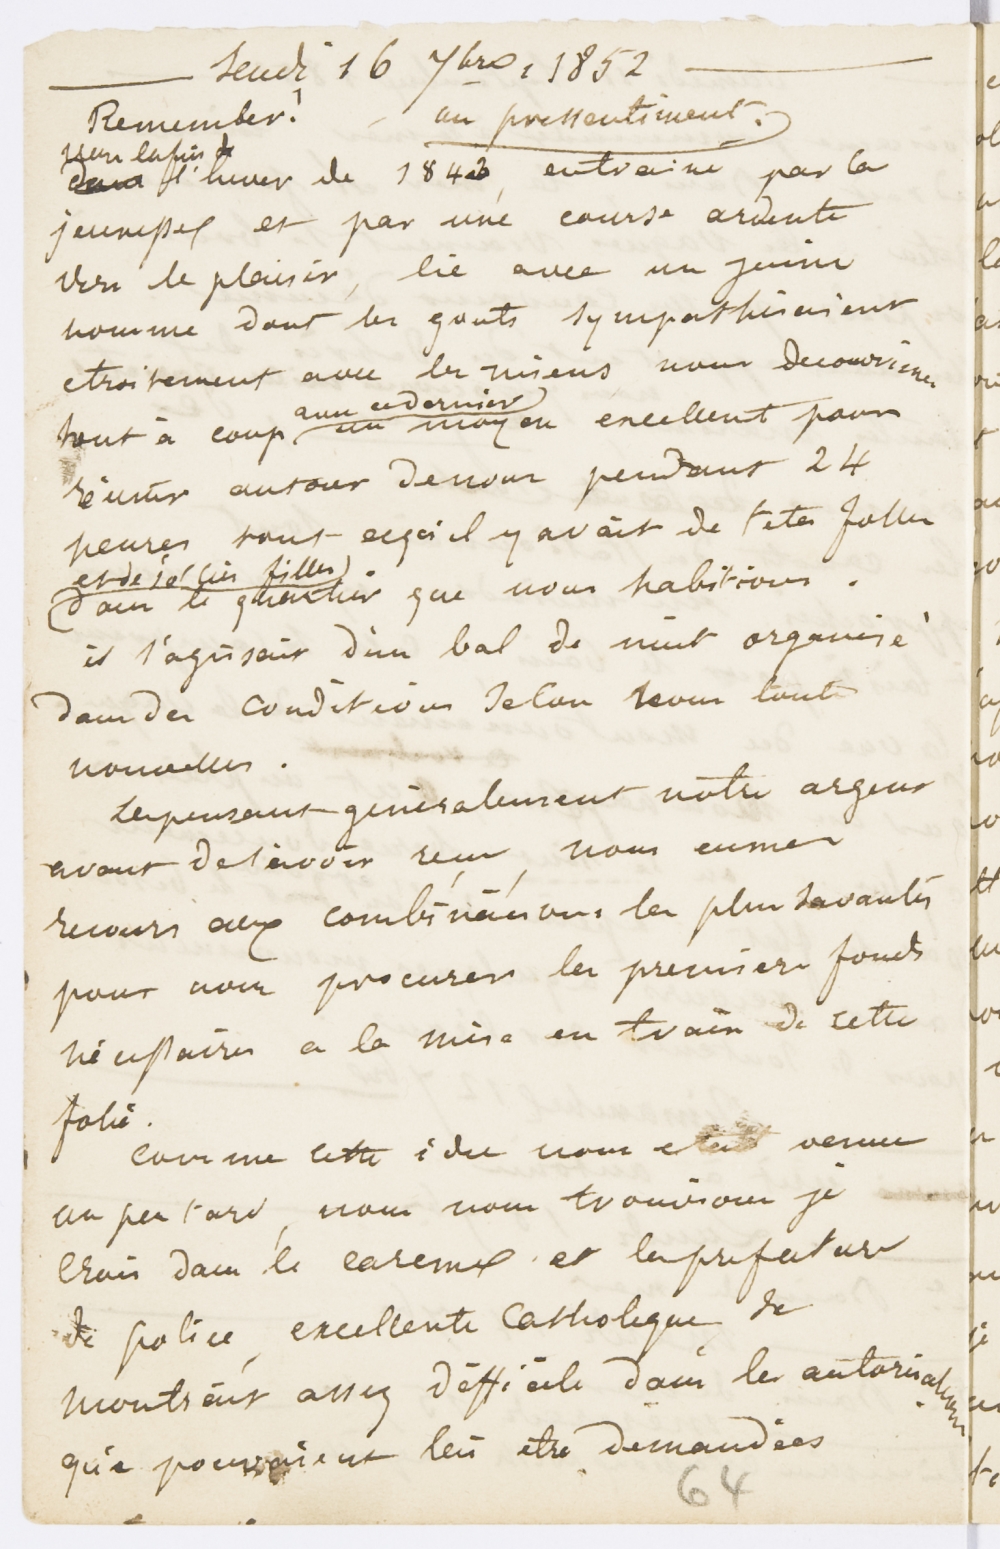 Jeudi 16 7bre, 1852
Remember! un pressentiment.
vers la fin de
dans l'hiver de 1842, entrainé par la
jeunesse et par une course ardente
vers le plaisir, lié avec un jeune
homme dont les gouts sympathisaient
etroitement avec les miens nous decouvrimes
avec ce dernier
tout à coup un moyen excellent pour
réunir autour de nous pendant 24
heures tout ce qu'il y avait de tetes folles
et de jolies filles
dans le quartier que nous habitions.
il s'agissait d'un bal de nuit organisé
dans des conditions selon nous toutes
nouvelles.
Depensant généralement notre argent
avant de l'avoir reçu, nous eumes
recours aux combinaisons les plus savantes
pour nous procurer les premiers fonds
nécessaires a la mise en train de cette
folie.
Comme cette idée nous etait venue
un peu tard, nous nous trouvions je
crois dans le careme et la prefecture
de police, excellente Catholique, se
montrait assez difficile dans les autorisations
qui pouvaient lui etre demandées
64